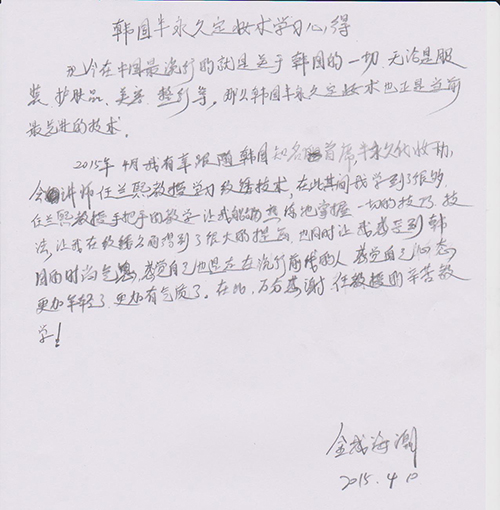 韩国半永久定妆术学习心得
现今在中国最流行的就是关于韩国的一切,无论是服
装、护肤品、美容、整形等。那么韩国半永久定妆术也正是当前
最先进的技术。
2015年4月我有幸跟随韩国知名首席,半永久化妆协
会讲师任兰熙教授学习纹绣技术,在此其间我学到了很多。
任兰熙教授手把手的教学让我能够熟练地掌握一切的技巧、技
法,让我在纹绣方面得到了很大的提高,也同时让我感受到韩
国的时尚气息,感觉自己也走在流行前线的人,感觉自己心态
更加年轻了,更加有气质了。在此,万分感谢任教授的辛苦教
学!
金 海潮
2015.4 10